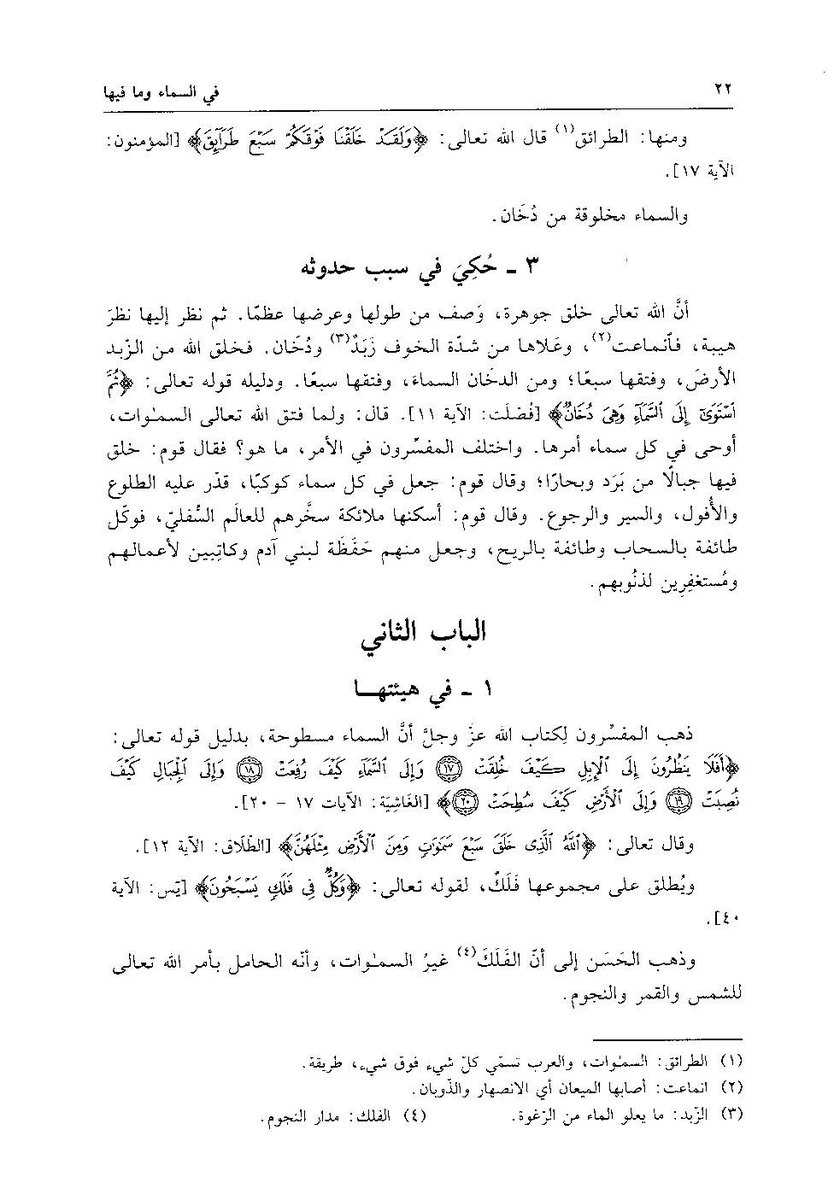 ٢٢ في السماء وما فيها
ومنها: الطرائق(١) قال الله تعالى: ﴿وَلَقَدْ خَلَقْنَا فَوْقَكُمْ سَبْعَ طَرَآئِقَ﴾ [المؤمنون:
الآية ١٧].
والسماء مخلوقة من دُخَان.
٣ ـ حُكِيَ في سبب حدوثه
أنَّ الله تعالى خلق جوهرة، وَصف من طولها وعرضها عظمًا. ثم نظر إليها نظرَ
هيبة، فٱنماعت(٢)، وعَلاها من شدّة الخوف زَبَدٌ(٣) ودُخَان. فخلق الله من الزّبد
الأرضَ، وفتقها سبعًا؛ ومن الدخَان السماءَ، وفتقها سبعًا. ودليله قوله تعالى: ﴿ثُمَّ
ٱسْتَوَىٰٓ إِلَى ٱلسَّمَآءِ وَهِىَ دُخَانٌ﴾ [فُصّلَت: الآية ١١]. قال: ولما فتق الله تعالى السمـٰوات،
أوحى في كل سماء أمرها. واختلف المفسّرون في الأمر، ما هو؟ فقال قوم: خلق
فيها جبالًا من بَرَد وبحارًا؛ وقال قوم: جعل في كل سماء كوكبًا، قدّر عليه الطلوع
والأُفول، والسير والرجوع. وقال قوم: أسكنها ملائكة سخَّرهم للعالَم السُّفليّ، فوكّل
طائفة بالسحاب وطائفة بالريح، وجعل منهم حَفَظَة لبني آدم وكاتِبين لأعمالهم
ومُستغفِرِين لذنُوبهم.
الباب الثاني
١ ـ في هيئتهـا
ذهب المفسِّرون لِكتاب الله عزّ وجلَّ أنَّ السماء مسطوحة، بدليل قوله تعالى:
﴿أَفَلَا يَنظُرُونَ إِلَى ٱلْإِبِلِ كَيْفَ خُلِقَتْ ١٧ وَإِلَى ٱلسَّمَآءِ كَيْفَ رُفِعَتْ ١٨ وَإِلَى ٱلْجِبَالِ كَيْفَ
نُصِبَتْ ١٩ وَإِلَى ٱلْأَرْضِ كَيْفَ سُطِحَتْ ٢٠﴾ [الغَاشِيَة: الآيات ١٧ - ٢٠].
وقال تعالى: ﴿ٱللَّهُ ٱلَّذِى خَلَقَ سَبْعَ سَمَٰوَٰتٍ وَمِنَ ٱلْأَرْضِ مِثْلَهُنَّ﴾ [الطّلَاق: الآية ١٢].
ويُطلق على مجموعها فَلَكٌ، لقوله تعالى: ﴿وَكُلٌّ فِى فَلَكٍ يَسْبَحُونَ﴾ [يٓس: الآية
٤٠].
وذهب الحَسَن إلى أنّ الفَلَكَ(٤) غيرُ السمـٰوات، وأنّه الحامل بأمر الله تعالى
للشمس والقمر والنجوم.
(١) الطرائق: السمـٰوات، والعرب تسمّي كلّ شيء فوق شيء، طريقة.
(٢) انماعت: أصابها الميعان أي الانصهار والذّوبان.
(٣) الزّبد: ما يعلو الماء من الرّغوة. (٤) الفلك: مدار النجوم.